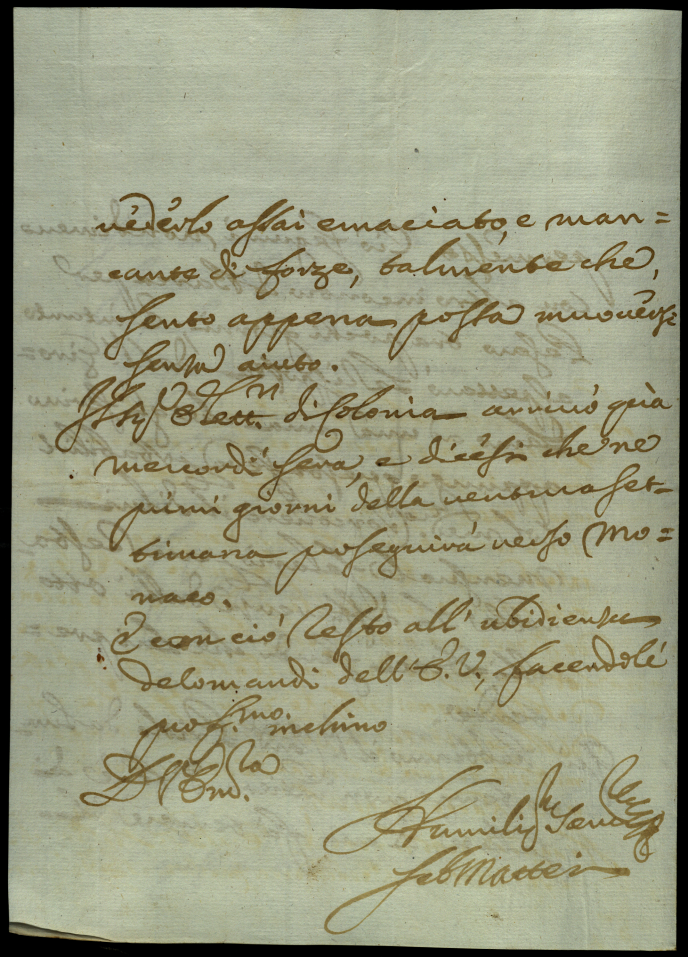 vederlo assai emaciato, e man=
cante di forze, talmente che,
sento appena possa muoversi
senza aiuto.
Elett.n di Colonia arrivò quà
mercordì sera, e dicesi che ne
primi giorni della ventura set=
timana proseguirà verso Mo=
naco.
E con ciò resto all' ubidienza
de comandi dell' E. V., facendole
prof.mo inchino
D V Em.za
Humiliss.
Seb Mattei